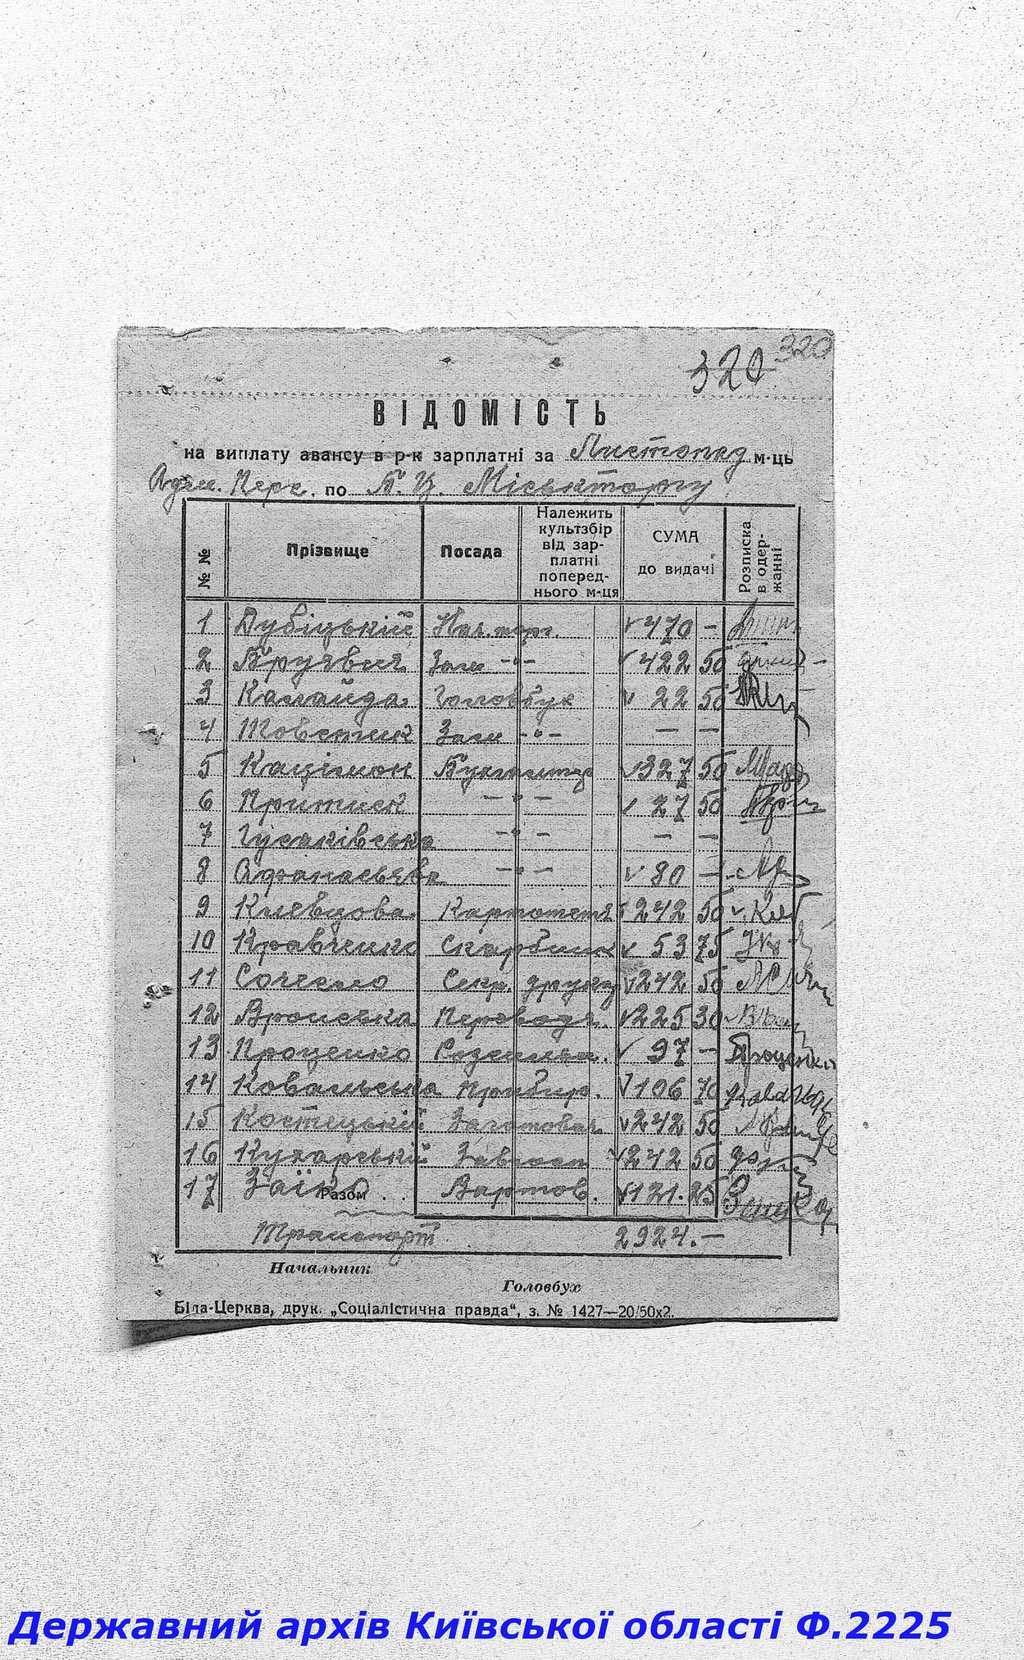 320 320
ВІДОМІСТЬ
на виплату авансу в р-к зарплатні за Листопад м-ць
Адм. Перс. по Б. Ц. Міськторгу
№ № Прізвище Посада Належить культзбір від зар-платні поперед-нього м-ця СУМА до видачі Розписка в одер-жанні
1 Дубіцький Нач. торг. 470 —
2 Зам —"— 422 50
3 Канайда Головбук 22 50
4 Жовстик Зам —"— — —
5 Бухгалтер 327 50
6 Притиск —"— 27 50
7 Гусаківська —"— — —
8 Афанасьєва —"— 80 —
9 Киевцова 242 50
10 Кравченко Скарбник 53 75
11 Секр. друкар 242 50
12 Вронська Переводч. 225 30
13 Проценко 97 — Проценко
14 Ковальська Прибир. 106 70
15 Костецький Заготовач 242 50
16 Кухарський Завгосп 242 50
17 Заїка Разом . . Вартов. 121.25
Транспорт 2924.—
Начальник
Головбух
Біла-Церква, друк. „Соціалістична правда“, з. № 1427—20/50х2.
Державний архів Київської області Ф.2225